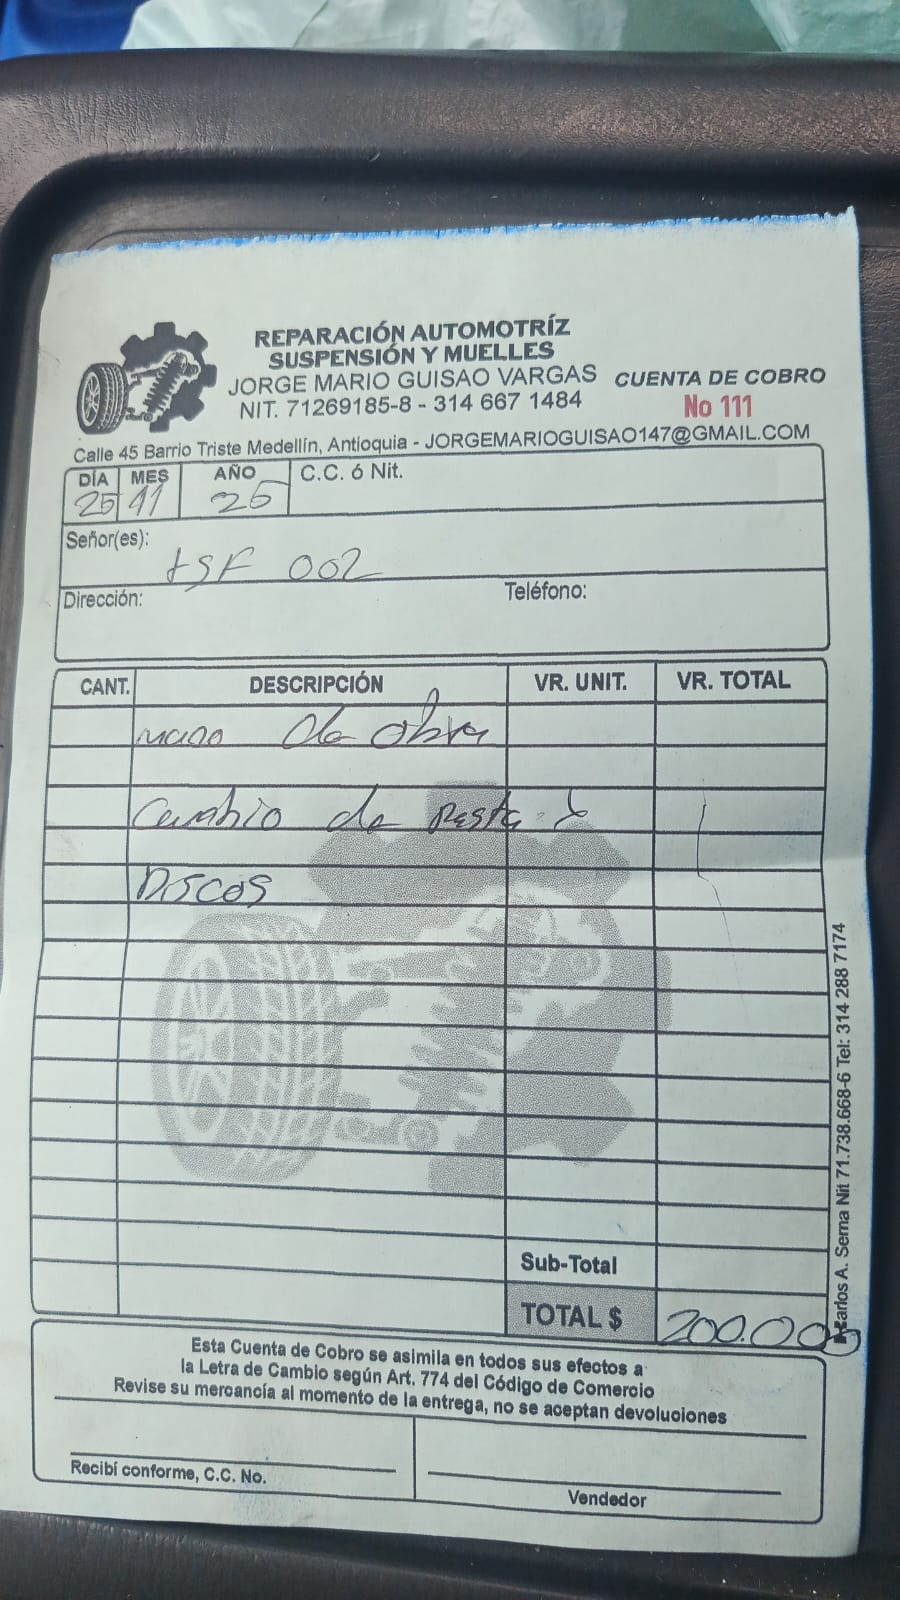 REPARACIÓN AUTOMOTRÍZ
SUSPENSIÓN Y MUELLES
JORGE MARIO GUISAO VARGAS
NIT. 71269185-8 - 314 667 1484
CUENTA DE COBRO
No 111
Calle 45 Barrio Triste Medellín, Antioquia - JORGEMARIOGUISAO147@GMAIL.COM
DÍA MES AÑO C.C. ó Nit.
25 11 25
Señor(es):
tSF 002
Dirección: Teléfono:
CANT. DESCRIPCIÓN VR. UNIT. VR. TOTAL
mano de obra
Cambio de Pasta
Discos
Sub-Total
TOTAL $ 200.000
Esta Cuenta de Cobro se asimila en todos sus efectos a
la Letra de Cambio según Art. 774 del Código de Comercio
Revise su mercancía al momento de la entrega, no se aceptan devoluciones
Recibí conforme, C.C. No.
Vendedor
Carlos A. Serna Nit 71.738.668-6 Tel: 314 288 7174